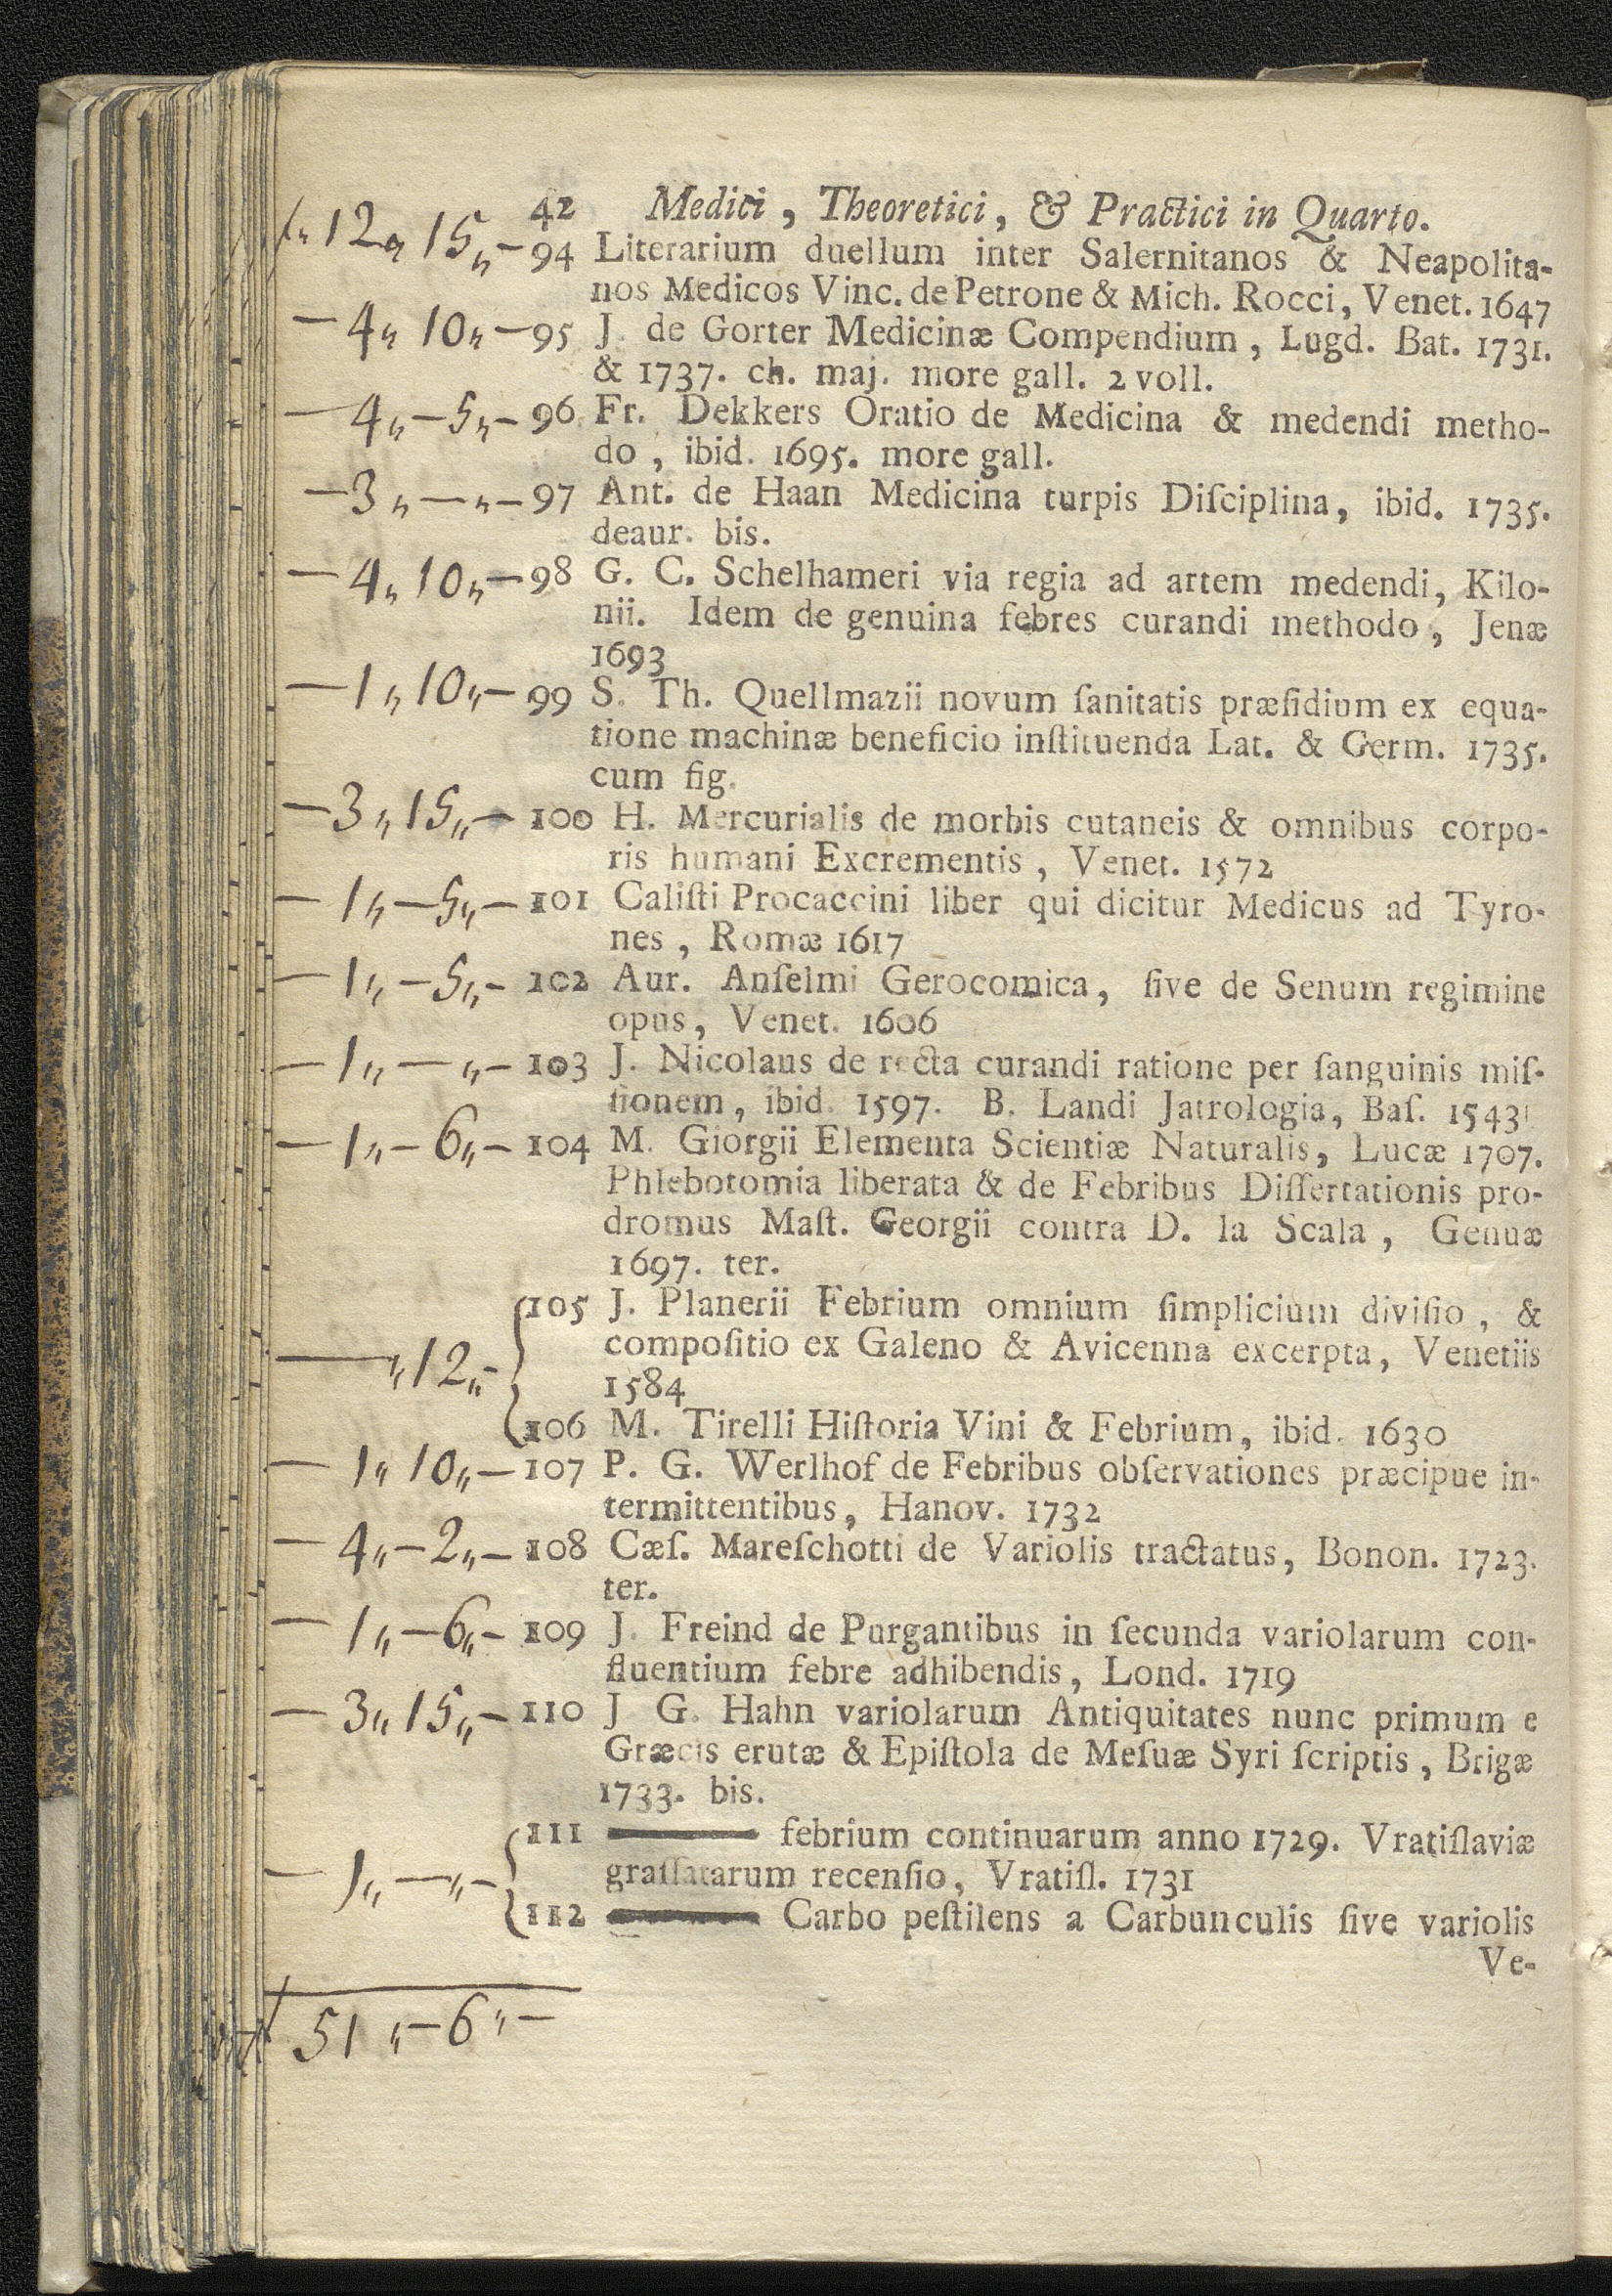 42 Medici, Theoretici, & Practici in Quarto.
12„ 15„ - 94 Literarium duellum inter Salernitanos & Neapolita-
nos Medicos Vinc. de Petrone & Mich. Rocci, Venet. 1647
— 4„ 10„ — 95 J. de Gorter Medicinæ Compendium, Lugd. Bat. 1731.
& 1737. ch. maj. more gall. 2 voll.
— 4„ — 5„ — 96 Fr. Dekkers Oratio de Medicina & medendi metho-
do, ibid. 1695. more gall.
— 3„ — „ — 97 Ant. de Haan Medicina turpis Diſciplina, ibid. 1735.
deaur. bis.
— 4„ 10„ — 98 G. C. Schelhameri via regia ad artem medendi, Kilo-
nii. Idem de genuina febres curandi methodo, Jenæ
1693
— 1„ 10„ — 99 S. Th. Quellmazii novum ſanitatis præſidium ex equa-
tione machinæ beneficio inſtituenda Lat. & Germ. 1735.
cum fig.
— 3„ 15„ — 100 H. Mercurialis de morbis cutaneis & omnibus corpo-
ris humani Excrementis, Venet. 1572
— 1„ — 5„ — 101 Caliſti Procaccini liber qui dicitur Medicus ad Tyro-
nes, Romæ 1617
— 1„ — 5„ - 102 Aur. Anſelmi Gerocomica, ſive de Senum regimine
opus, Venet. 1606
— 1„ — „ — 103 J. Nicolaus de recta curandi ratione per ſanguinis miſ-
ſionem, ibid. 1597. B. Landi Jatrologia, Baſ. 1543
— 1„ — 6„ — 104 M. Giorgii Elementa Scientiæ Naturalis, Lucæ 1707.
Phlebotomia liberata & de Febribus Diſſertationis pro-
dromus Maſt. Georgii contra D. la Scala, Genuæ
1697. ter.
105 J. Planerii Febrium omnium ſimplicium diviſio, &
— „ 12„ - compoſitio ex Galeno & Avicenna excerpta, Venetiis
1584
106 M. Tirelli Hiſtoria Vini & Febrium, ibid. 1630
— 1„ 10„ — 107 P. G. Werlhof de Febribus obſervationes præcipue in-
termittentibus, Hanov. 1732
— 4„ — 2„ — 108 Cæſ. Mareſchotti de Variolis tractatus, Bonon. 1723.
ter.
— 1„ — 6„ - 109 J. Freind de Purgantibus in ſecunda variolarum con-
fluentium febre adhibendis, Lond. 1719
— 3„ 15„ — 110 J G. Hahn variolarum Antiquitates nunc primum e
Græcis erutæ & Epiſtola de Meſuæ Syri ſcriptis, Brigæ
1733. bis.
111 ——— febrium continuarum anno 1729. Vratiſlaviæ
— 1„ — „ - graſſatarum recenſio, Vratiſl. 1731
112 ——— Carbo peſtilens a Carbunculis ſive variolis
Ve-
51„ — 6„ —